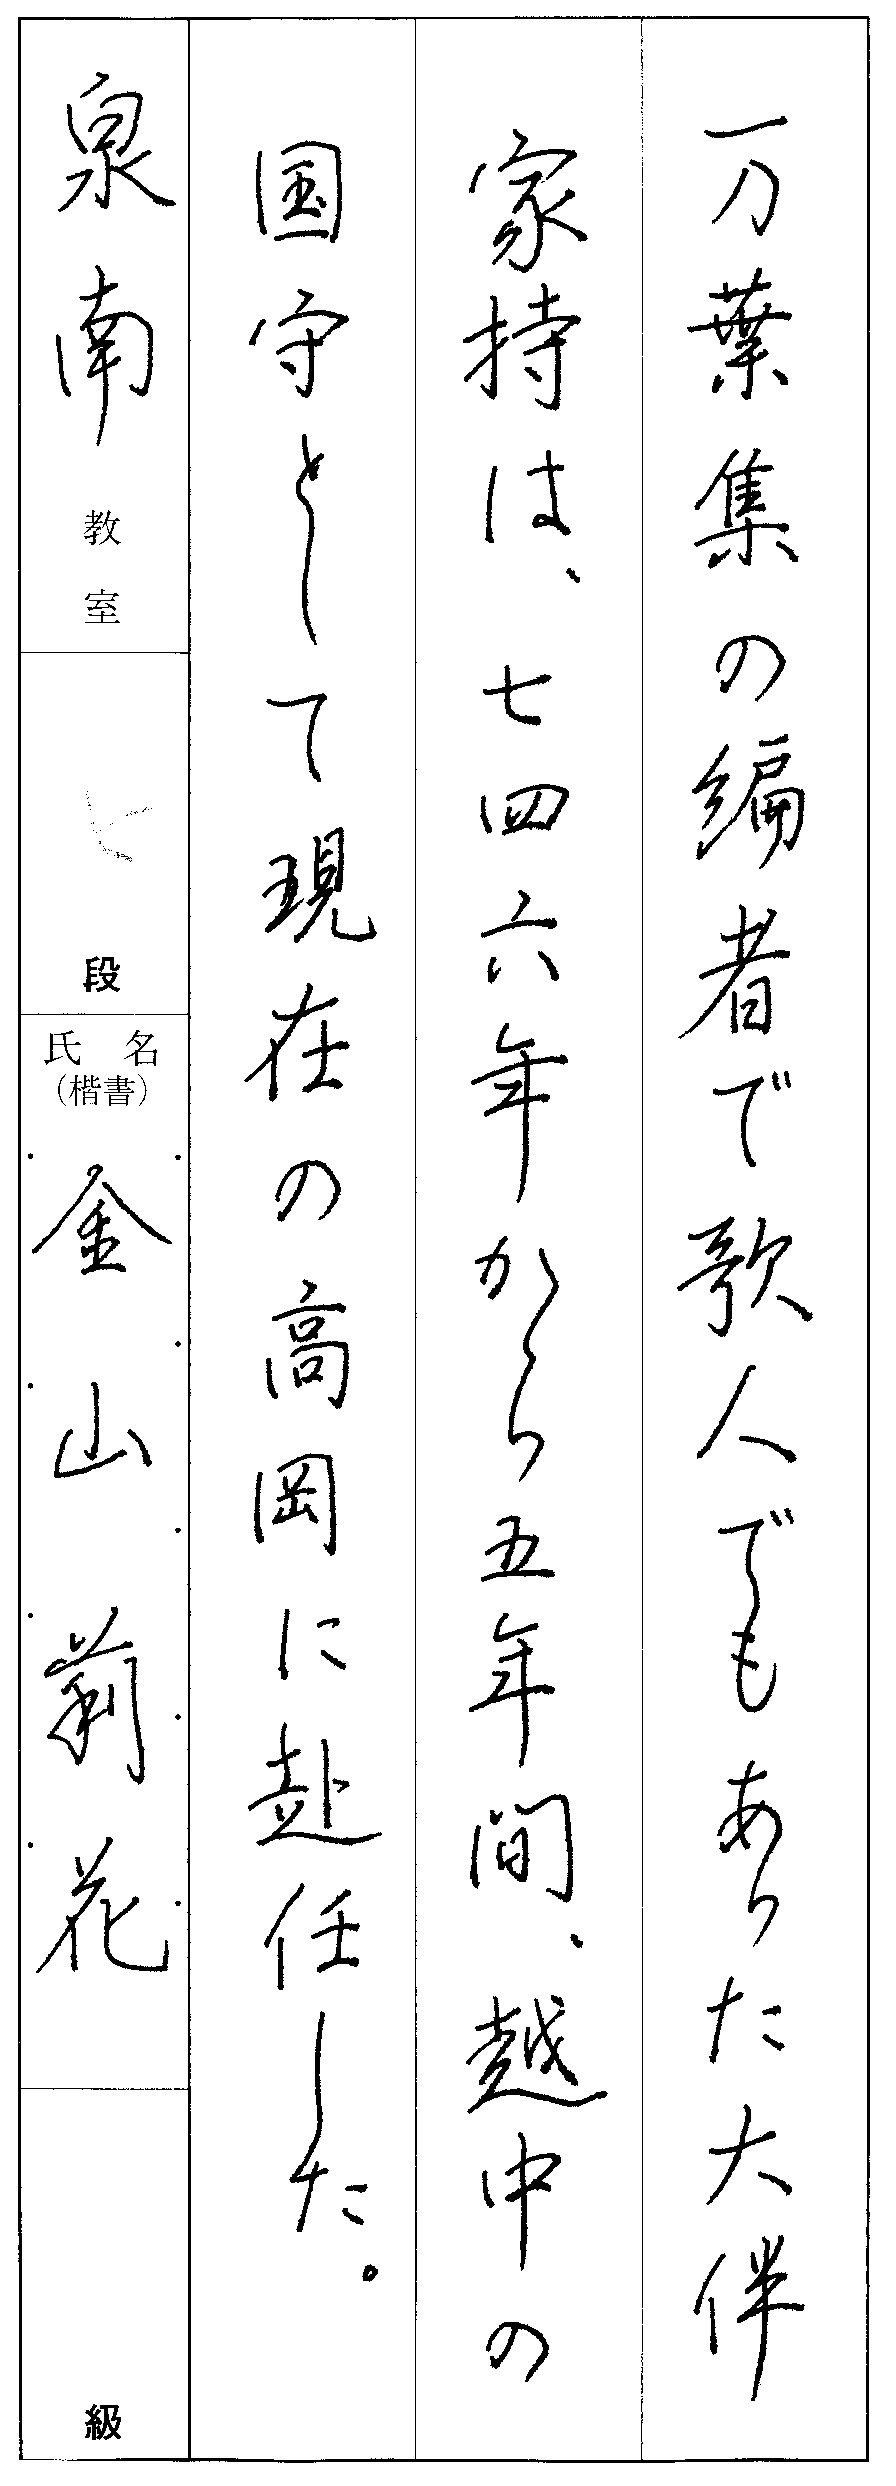 万葉集の編者で歌人でもあった大伴
家持は、七四六年から五年間、越中の
国守として現在の高岡に赴任した。
泉南教室
七段
氏名
(楷書)
金山莉花
級